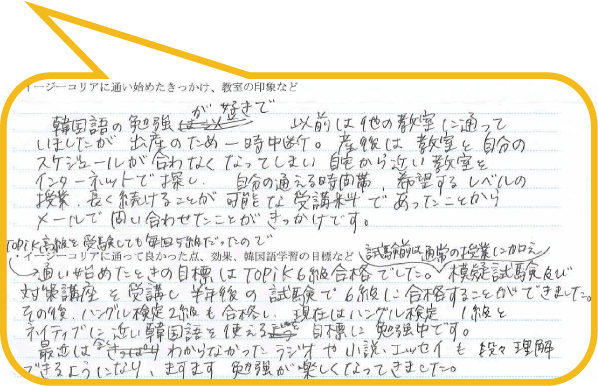 イージーコリアに通い始めたきっかけ、教室の印象など
韓国語の勉強が好きで 以前は他の教室に通って
いましたが 出産のため一時中断。産後は 教室と自分の
スケジュールが合わなくなってしまい 自宅から近い教室を
インターネットで探し、自分の通える時間帯、希望するレベルの
授業、長く続けることが可能な受講料であったことから
メールで問い合わせたことがきっかけです。
イージーコリアに通って良かった点、効果、韓国語学習の目標など
TOPIK高級を受験しても毎回5級だったので
通い始めたときの目標はTOPIK6級合格でした。試験前は通常の授業に加え 模擬試験及び
対策講座を受講し 半年後の試験で6級に合格することができました。
その後、ハングル検定2級も合格し、現在はハングル検定1級と
ネイティブに近い韓国語を使える 目標に勉強中です。
最近は 全く わからなかったラジオや小説、エッセイも 段々理解
できるようになり、ますます勉強が楽しくなってきました。